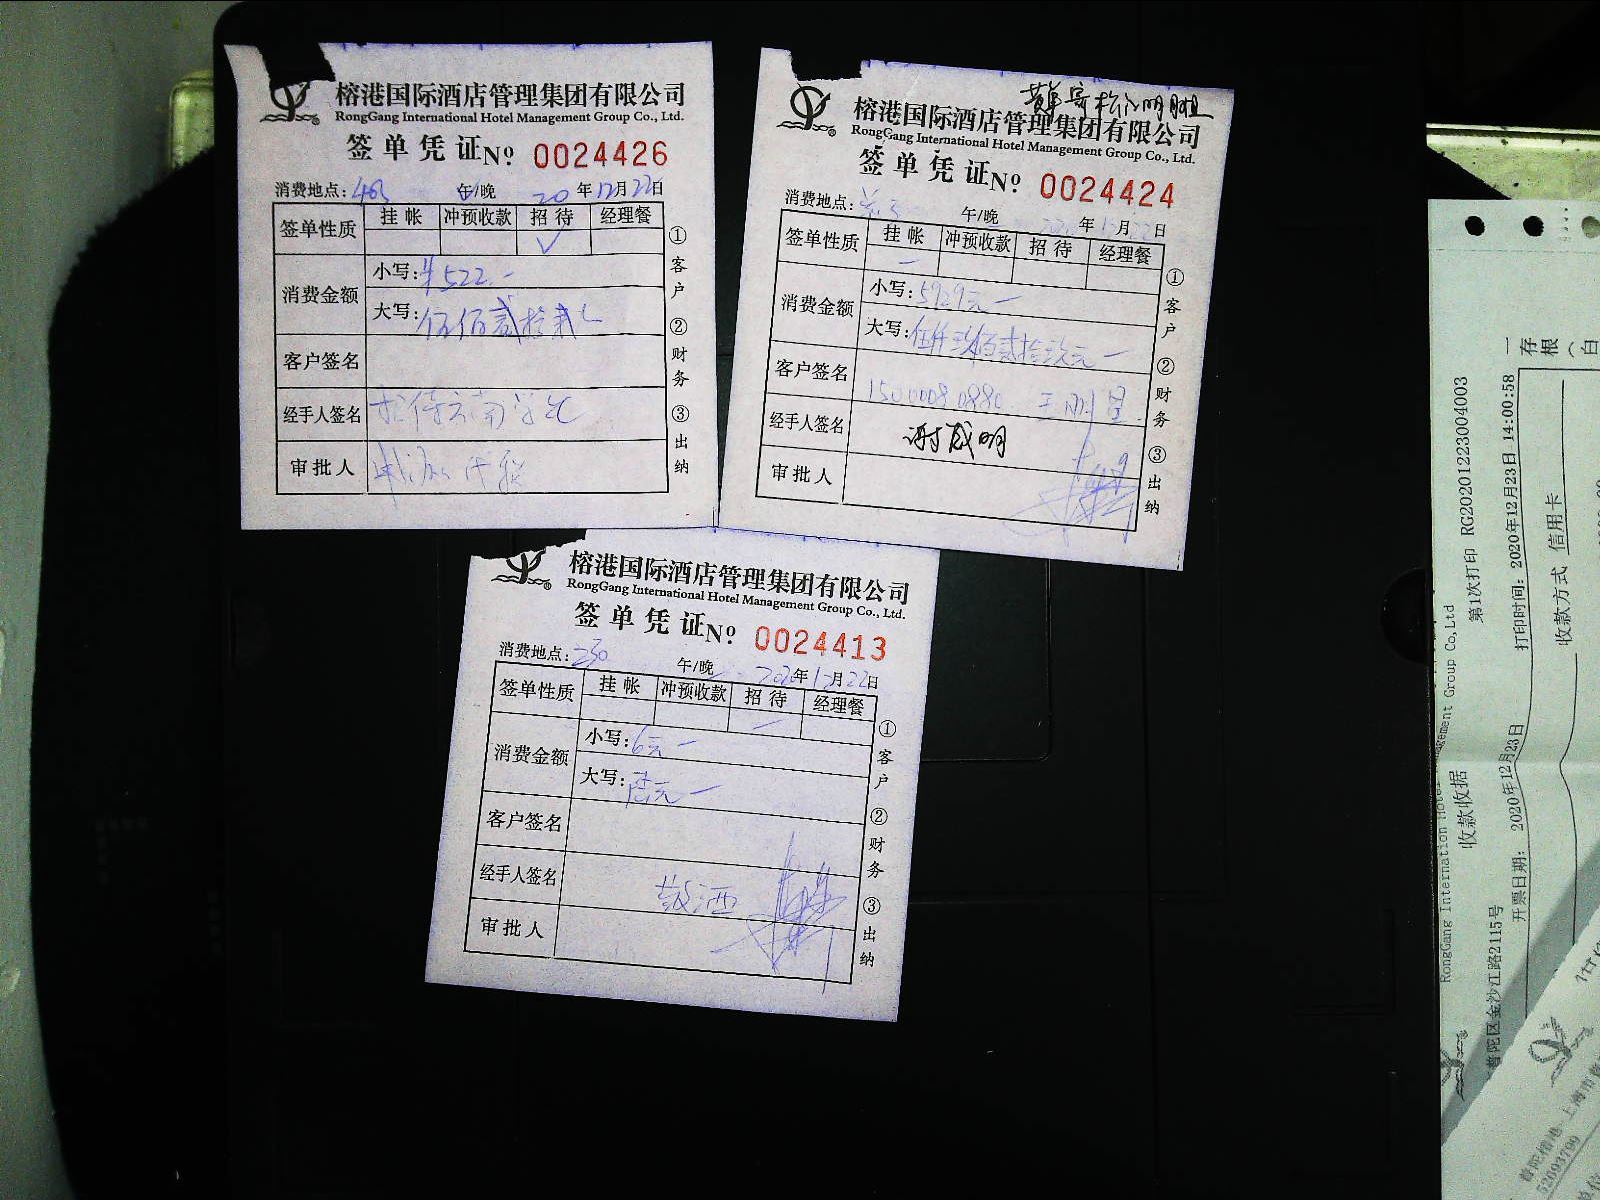 榕港国际酒店管理集团有限公司
RongGang International Hotel Management Group Co., Ltd.
签单凭证 Nº 0024426
消费地点: 午/晚 20年12月22日
签单性质 挂帐 冲预收款 招待 经理餐
✓
消费金额 小写:¥522.一
大写:伍佰贰拾贰
客户签名
经手人签名 招待云南
审批人
①客户 ②财务 ③出纳
榕港国际酒店管理集团有限公司
RongGang International Hotel Management Group Co., Ltd.
签单凭证 Nº 0024424
消费地点: 午/晚 年 月22日
签单性质 挂帐 冲预收款 招待 经理餐
消费金额 小写:5929元一
大写:伍仟玖佰贰拾玖元一
客户签名
经手人签名 谢成明
审批人
①客户 ②财务 ③出纳
榕港国际酒店管理集团有限公司
RongGang International Hotel Management Group Co., Ltd.
签单凭证 Nº 0024413
消费地点:230 午/晚 2020年12月22日
签单性质 挂帐 冲预收款 招待 经理餐
消费金额 小写:6元一
大写:陆元一
客户签名
经手人签名 敬酒
审批人
①客户 ②财务 ③出纳
RongGang International Hotel Management Group Co,Ltd
收款收据
第1次打印 RG20201223004003
普陀区金沙江路2115号
开票日期: 2020年12月23日
打印时间: 2020年12月23日 14:00:58
收款方式 信用卡
一存根(白
52693799